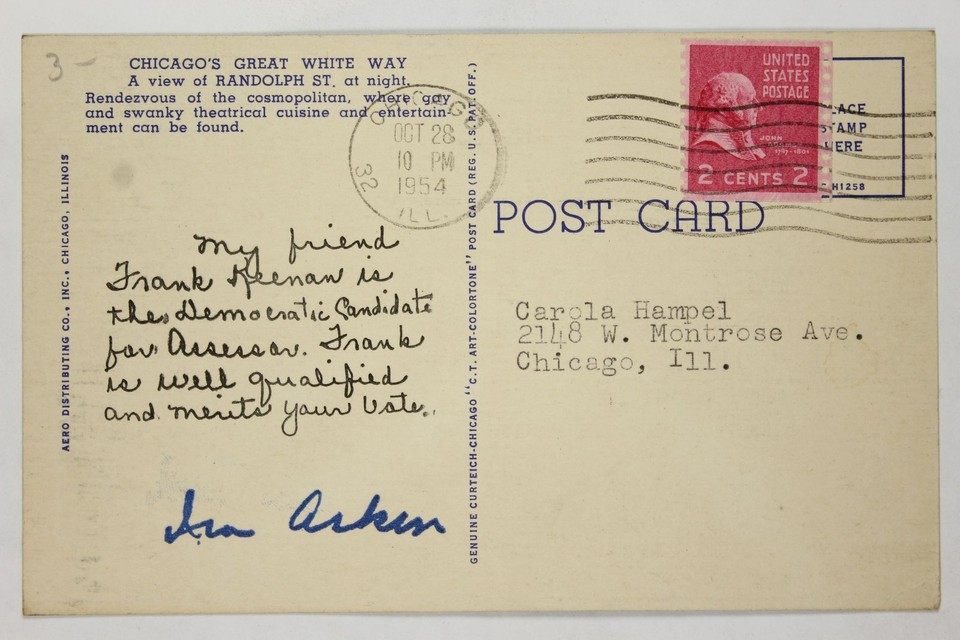 3-
CHICAGO'S GREAT WHITE WAY
A view of RANDOLPH ST. at night.
Rendezvous of the cosmopolitan, where gay
and swanky theatrical cuisine and entertain-
ment can be found.
AERO DISTRIBUTING CO., INC., CHICAGO, ILLINOIS
CHICAGO
OCT 28
10 PM
1954
32
ILL.
My friend
Frank Keenan is
the Democratic Candidate
for Assessor. Frank
is well qualified
and merits your Vote.
Ira Arkin
GENUINE CURTEICH-CHICAGO "C.T. ART-COLORTONE" POST CARD (REG. U.S. PAT. OFF.)
UNITED
STATES
POSTAGE
JOHN
2 CENTS 2
LACE
STAMP
HERE
H1258
POST CARD
Carola Hampel
2148 W. Montrose Ave.
Chicago, Ill.